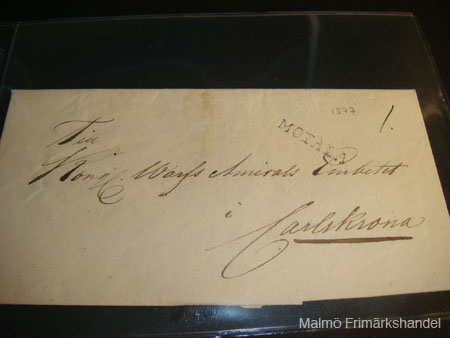 1577
1.
MOTALA
Till
Kongl Warfs Amirals Embetet
i
Carlskrona
Malmö Frimärkshandel